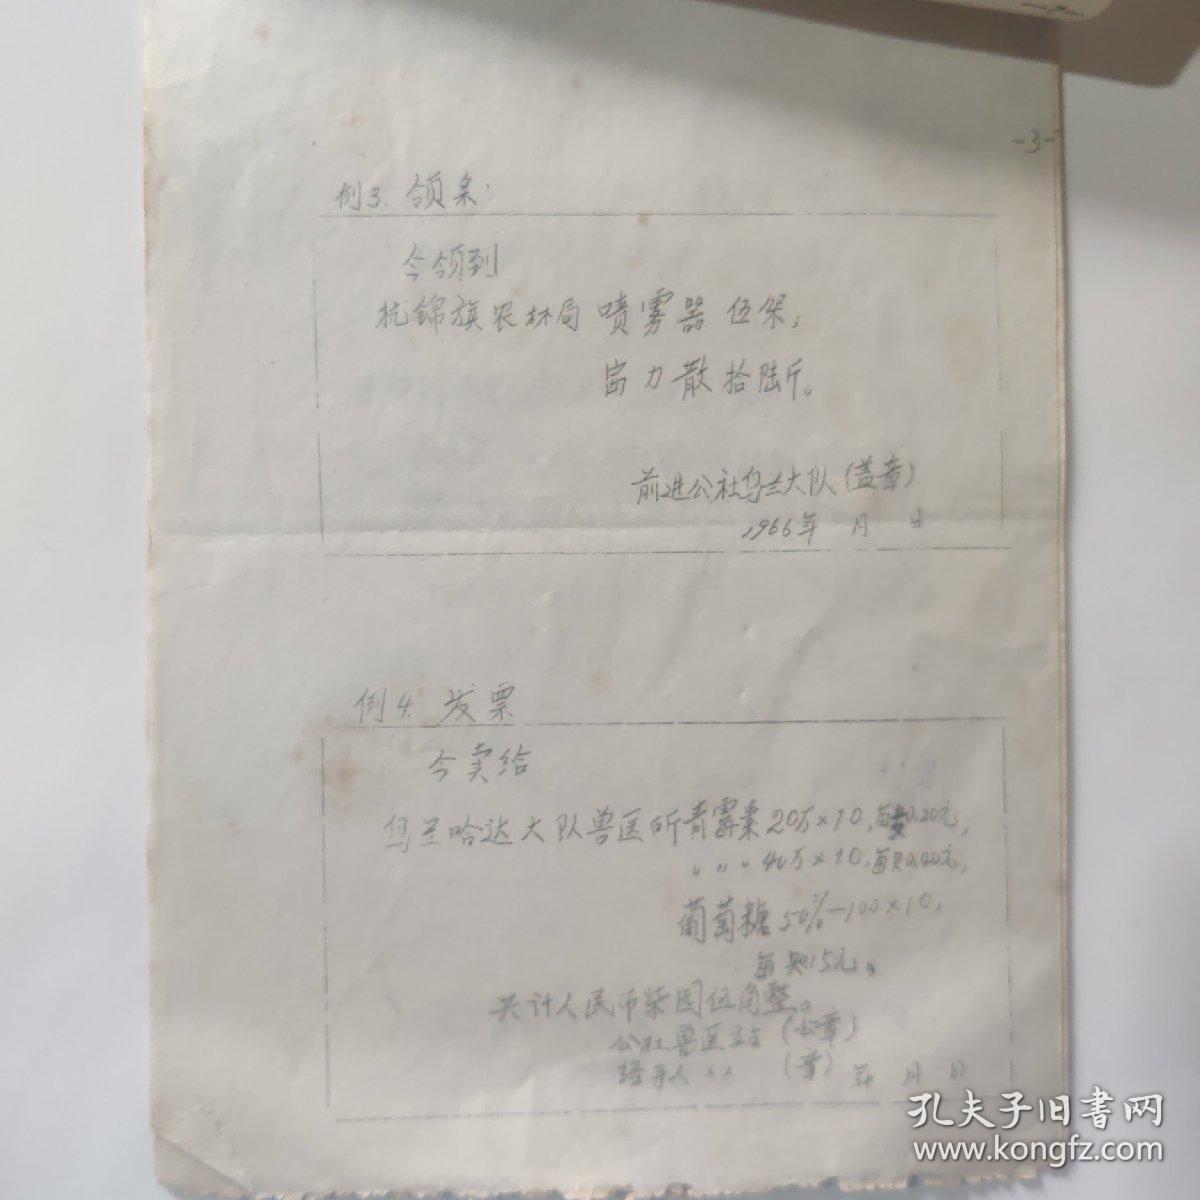 -3-
例3. 领条.
今领到
杭锦旗农林局 喷雾器 伍架;
富力散拾陆斤。
前进公社乌兰大队(盖章)
1966年 月 日
例4. 发票
今卖给
乌兰哈达大队兽医所青霉素20万×10,每支0.20元,
〃 〃 〃 40万×10,每只0.40元,
葡萄糖50%-100×10,
每只0.15元。
共计人民币柒园伍角整。
公社兽医站(公章)
经手人×× (章) 年 月 日
孔夫子旧书网
www.kongfz.com